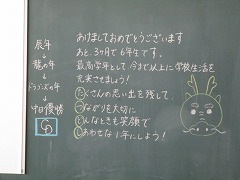 辰年
↓
龍の年
↓
ドラゴンズの年
↓
中日優勝
CD
あけましておめでとうございます
あと、3ヶ月で6年生です。
最高学年として今まで以上に学校生活を
充実させましょう!
たくさんの思い出を残して、
つながりを大切に
どんなときも笑顔で
しあわせな1年にしよう!